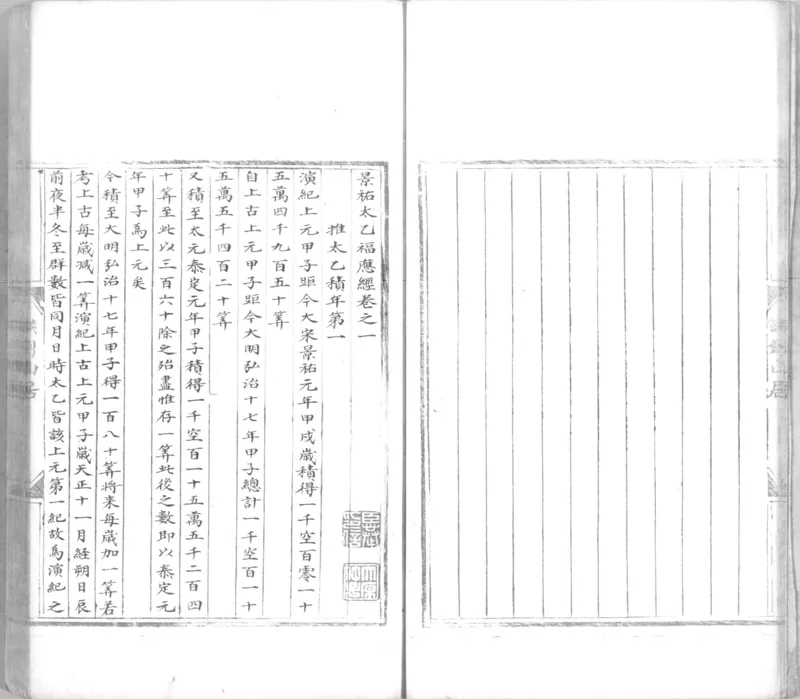 景祐太乙福應經卷之一
推太乙積年第一
演紀上元甲子距今大宋景祐元年甲戌歲積得一千空百零一十
五萬四千九百五十筭
自上古上元甲子距今大明弘治十七年甲子總計一千空百一十
五萬五千四百二十筭
又積至太元泰定元年甲子積得一千空百一十五萬五千二百四
十筭至此以三百六十除之殆盡惟存一筭此後之數即以泰定元
年甲子為上元矣
今積至大明弘治十七年甲子得一百八十筭將来每歲加一筭若
考上古每歲减一筭演紀上古上元甲子歲天正十一月経朔日辰
前夜半冬至群數皆同月日時太乙皆該上元第一紀故為演紀之
山居